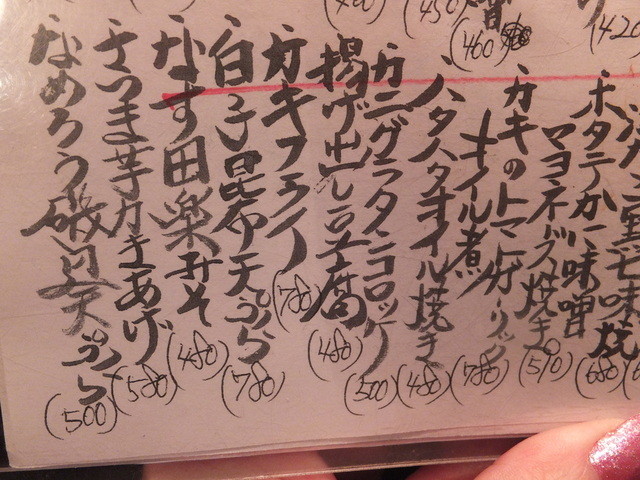 ホタテかに味噌
マヨネーズ焼き (680)
カキのトマトガーリック
オイル煮 (780)
ハタハタオイル焼き (480)
カニグラタンコロッケ (500)
揚げ出し豆腐 (480)
カキフライ (780)
白子昆布天ぷら (780)
なす田楽みそ (480)
さつま芋かきあげ (580)
なめろう磯辺天ぷら (500)